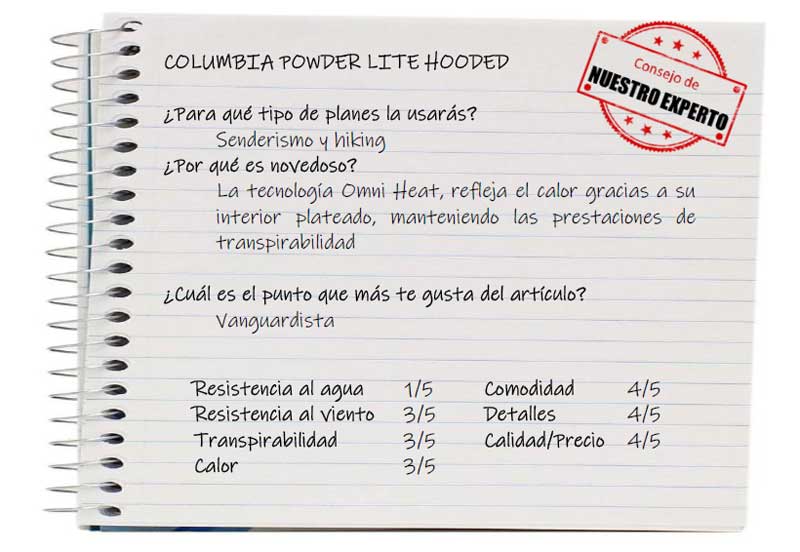 COLUMBIA POWDER LITE HOODED
Consejo de
NUESTRO EXPERTO
¿Para qué tipo de planes la usarás?
Senderismo y hiking
¿Por qué es novedoso?
La tecnología Omni Heat, refleja el calor gracias a su
interior plateado, manteniendo las prestaciones de
transpirabilidad
¿Cuál es el punto que más te gusta del artículo?
Vanguardista
Resistencia al agua 1/5 Comodidad 4/5
Resistencia al viento 3/5 Detalles 4/5
Transpirabilidad 3/5 Calidad/Precio 4/5
Calor 3/5